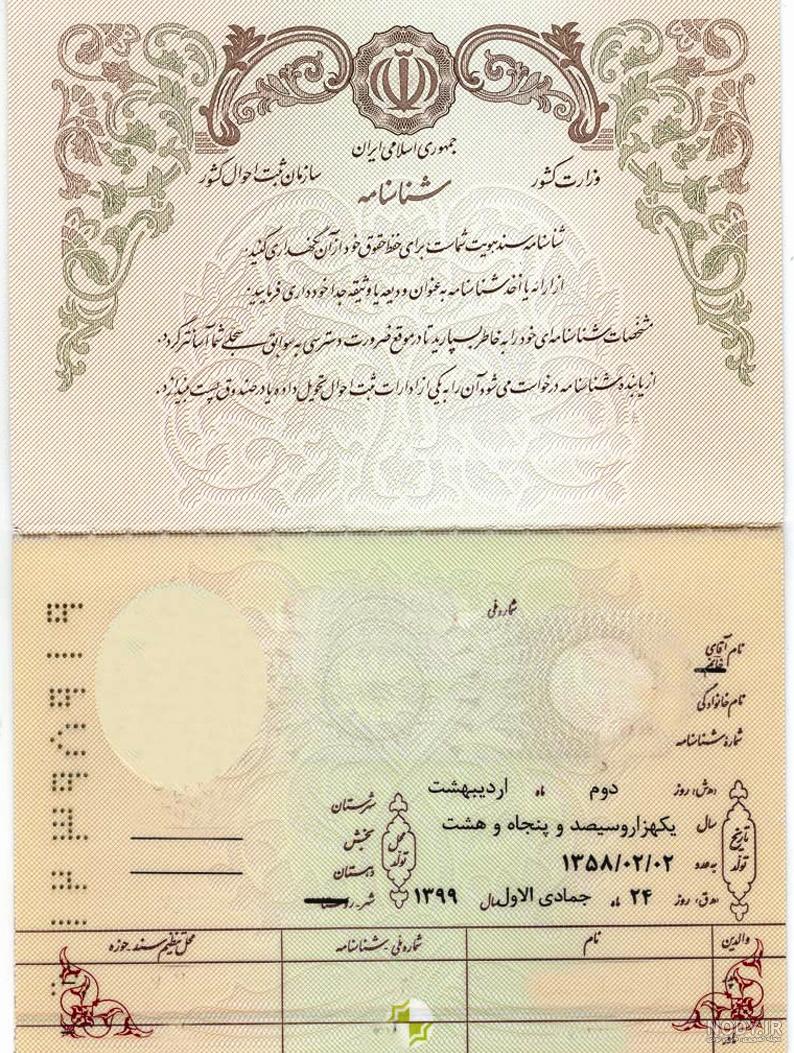 جمهوری اسلامی ایران
وزارت کشور
سازمان ثبت احوال کشور
شناسنامه
شناسنامه سند هویت شماست برای حفظ حقوق خود از آن نگهداری کنید.
از ارائه یا اخذ شناسنامه به عنوان ودیعه یا وثیقه جداً خودداری فرمایید.
مشخصات شناسنامه‌ای خود را به خاطر بسپارید تا در موقع ضرورت دسترسی به سوابق سجلی شما آسانتر گردد.
از یابنده شناسنامه درخواست می شود آن را به یکی از ادارات ثبت احوال تحویل داده یا در صندوق پست بیندازد.
شماره ملی
نام آقای
خانم
نام خانوادگی
شماره شناسنامه
تاریخ تولد
(ه.ش) روز دوم ماه اردیبهشت
سال یکهزاروسیصد و پنجاه و هشت
به عدد ۱۳۵۸/۰۲/۰۲
(ه.ق) روز ۲۴ ماه جمادی الاول سال ۱۳۹۹
محل تولد
شهرستان
بخش
دهستان
شهر
والدین نام شماره ملی - شناسنامه محل تنظیم سند - حوزه
NODY.IR